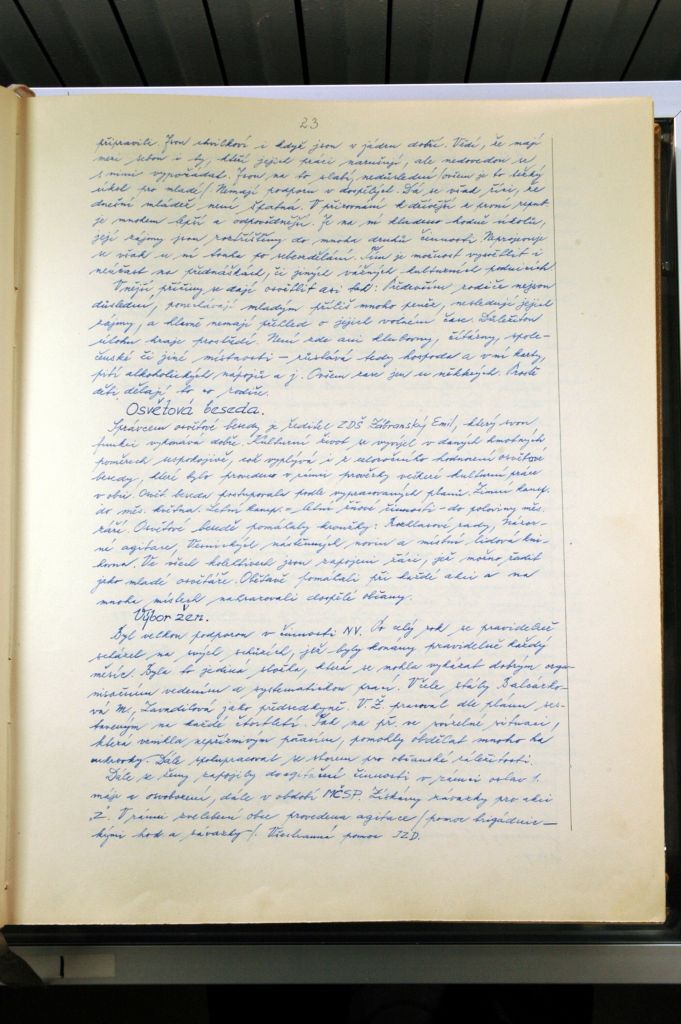 23
připravile. Jsou chvilkoví i když jsou v jádru dobří. Vědí, že mají
mezi sebou i ty, kteří jejich práci narušují, ale nedovedou se
s nimi vypořádat. Jsou na to slabí, nedůslední /ovšem je to těžký
úkol pro mladé/. Nemají podporu v dospělých. Dá se však říci, že
dnešní mládež není špatná. V přirovnání k dřívější a první repub.
je mnohem lepší a odpovědnější. Je na ni kladeno hodně úkolů,
její zájmy jsou roztříštěny do mnoha druhů činnosti. Neprojevuje
se však u ní touha po sebevzdělání. Tím je možnost vysvětlit i
neúčast na přednáškách, či jiných vážných kulturních podnicích
Vnější příčiny se dají osvětlit asi tak: Především rodiče nejsou
důslední, ponechávají mladým příliš mnoho peněz, nesledují jejich
zájmy, a hlavně nemají přehled o jejich volném čase. Důležitou
úlohu hraje prostředí. Není zde ani klubovny, čítárny, spole-
čenské či jiné místnosti – zůstává tedy hospoda a v ní karty,
pití alkoholických nápojů a j. Ovšem zase jen u některých. Prostě
děti dělají to co rodiče.
Osvětová beseda.
Správcem osvětové besedy je ředitel ZDŠ Zábranský Emil, který svou
funkci vykonává dobře. Kulturní život se vyvíjel v daných hmotných
poměrech uspokojivě, což vyplývá i z celoročního hodnocení osvětové
besedy, které bylo provedeno v rámci prověrky veškeré kulturní práce
v obci. Osvět. beseda postupovala podle vypracovaných plánů. Zimní kamp.
do měs. května. Letní kamp. – letní žňové činnosti – do poloviny měs.
září. Osvětové besedě pomáhaly kroužky: Rozhlasové rady, Názor-
né agitace, Vesnických nástěnných novin a místní lidová kni-
hovna. Ve všech kolektivech jsou zapojeni žáci, jež možno řadit
jako mladé osvětáře. Obětavě pomáhali při každé akci a na
mnoha místech nahrazovali dospělé občany.
Výbor žen.
Byl velkou podporou v činnosti NV. Po celý rok se pravidelně
scházel na svých schůzích, jež byly konány pravidelně každý
měsíc. Byla to jediná složka, která se mohla vykázat dobrým orga-
nisačním vedením a systematickou prací. V čele stály Balcárko-
vá M., Zavadilová jako předsedkyně. V. Ž. pracoval dle plánu ses-
taveným na každé čtvrtletí. Tak na př. ve svízelné situaci,
která vznikla nepříznivým počasím, pomohly obdělat mnoho ha
cukrovky. Dále spolupracoval se sborem pro občanské záležitosti.
Dále se ženy zapojily do agitační činnosti v rámci oslav 1.
máje a osvobození, dále v období MČSP. Získány závazky pro akci
„Z“. V rámci zvelebení obce provedena agitace /pomoc brigádnic-
kými hod. a závazky/. Všestranná pomoc JZD.